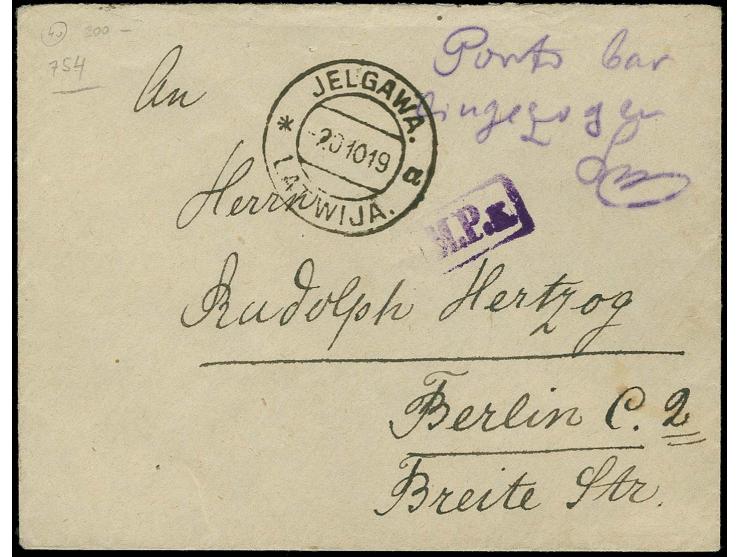 40 300 -
754
An
Porto bar
Eingezogen
JELGAWA.
* -2010 19 a
LATWIJA.
Herrn
M.P.K.
Rudolph Hertzog
Berlin C. 2
Breite Str.